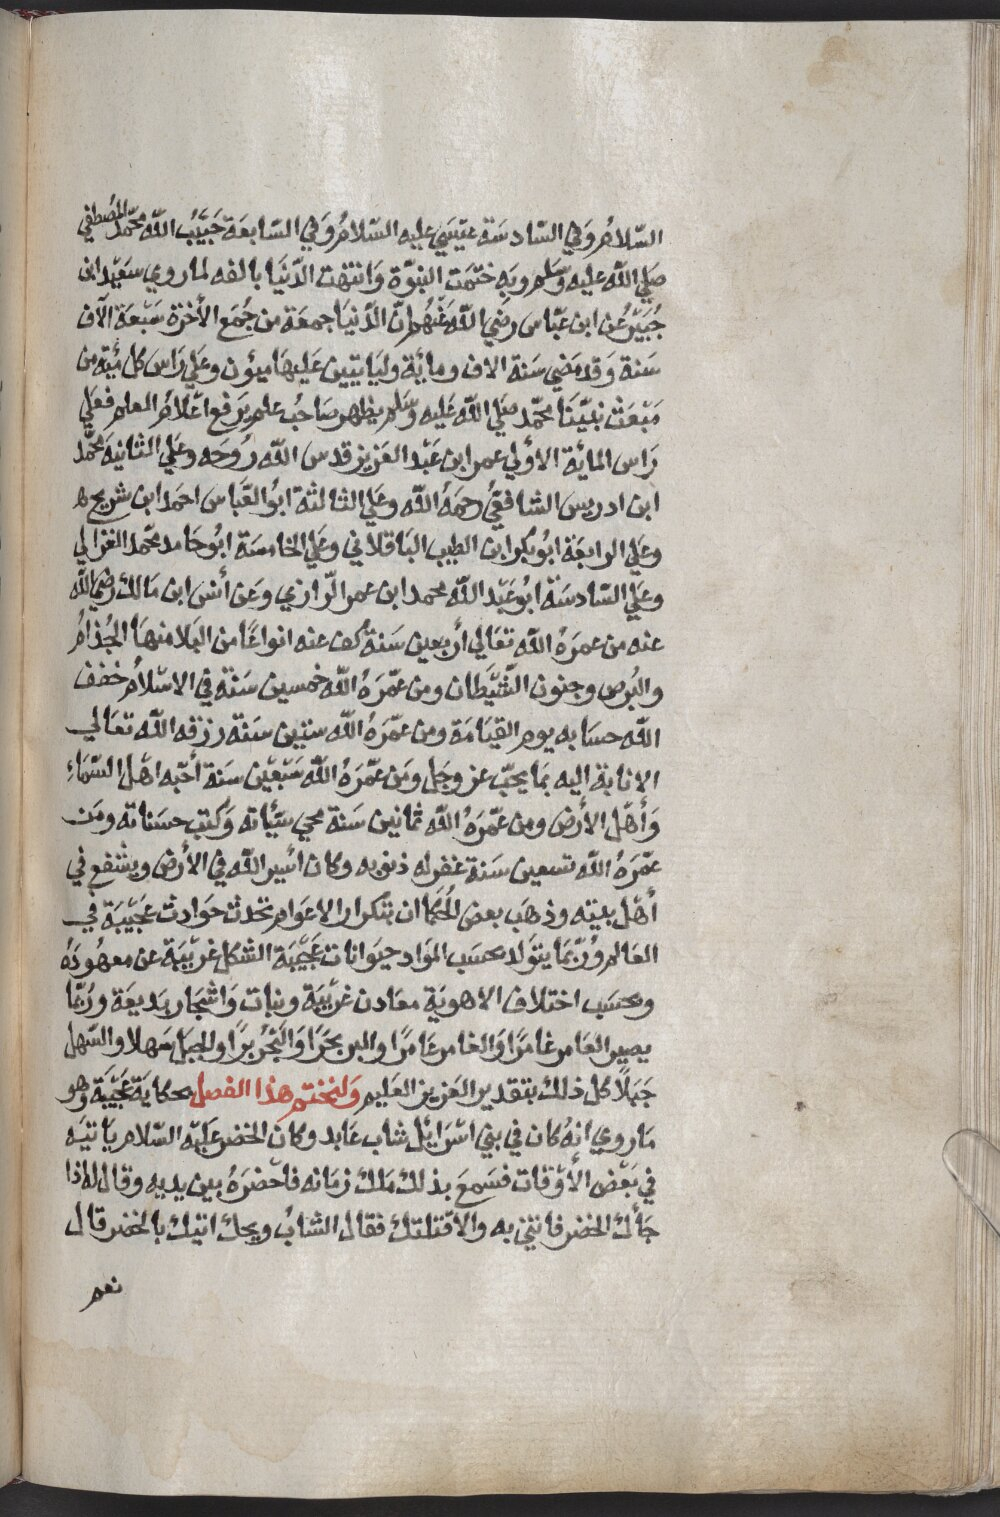 السّلامُ وَفي السّادسَة عيسَي عليه السّلامُ وَفي السّابعَة حَبيبُ اللّه محمّد المُصْطفي
صَلي اللّه عليه وسّلم وبه ختمَت النبوّة وَانتهَت الدّنيَا بالفه لما روي سَعيْد ابن
جُبَيْر عُن ابن عبّاس رضيَ اللّه عَنْهُم انّ الدّنيَا جمعَة من جُمَع الأخرَة سَبْعَة الآف
سَنة وَقد مَضي سَنة الاف ومائة وليَاتيين عَليهَا ميؤن وعَلي رَاس كل مئية من
مَبْعَث نبيّنَا محمّد صَلي اللّه عَليه وسّلم يظهر صَاحبُ علم يرَفع اعْلامُ المعلم فعَلي
رَاس المائة الاولي عمر ابن عَبْد العَزيز قدس اللّه رُوحَه وعَلي الثانيَة محمّد
ابن ادريس الشافعيُ رحمَهُ اللّه وعَلي الثالثة ابُو العَبّاس احمَد ابن شريح م
وعَلي الرابعَة ابُو بكر ابن الطيب البَاقلاني وعَلي الخامسَة ابُو حَامد محمّد الغزالي
وعَلي السّادسَة ابُو عَبْد اللّه محمد ابن عمر الرّازي وعَن أنس ابن مَالك رضيَ اللّه
عنه من عمرَهُ اللّه تعَالي أربعين سَنة كف عنه انواعًا من البَلا منهَا الجُذامُ
والبُرص وجنون الشّيْطان ومن عمّرَهُ اللّه خمسين سَنة في الاسْلامُ خفف
اللّه حسَابه يوم القيَامَة ومن عمّرَهُ اللّه ستين سَنة رزقه اللّه تعَالي
الانابة اليه بمَا يحبّ عز وجَل ومَن عمّرَهُ اللّه سَبْعيْن سَنة أحَبّه اهْل السّمَاءِ
وَأهْل الأرض ومن عمّرَهُ اللّه ثمانين سَنة محي سَيْأته وَكتب حسَناته ومَن
عمّرَهُ اللّه تسعين سَنة غفر له ذنوبه وكان اسْير اللّه في الأرض ويشفع في
أهْل بيته وذهَب بعض الحُكمَا ان بتكرار الاعوَام تحدث حوَادث عَجيبَة في
العَالم ورُبّمَا يتوَلد بحسَب الموَاد حيوانات عَجيْبَة الشكل غريْبَة عن معهُودَهُ
وبحسَب اختلاف الاهويَة معَادن غريْبَة ونبات وَاشجَار بَديعَة ورُبّمَا
يصير العَامر غامرًا وَالغامر عَامرًا والبر بحرًا وَالبَحْر برًا والجبَل سَهلا والسّهل
جَبلًا كل ذلك بتقدير العَزيز العَليم وَلنختم هذا الفصل بحكايَة عَجيْبَة وَهو
مَا روي انهُ كان في بني اسْرَائل شاب عَابد وكان الخضر عَليْه السّلام يَاتيَه
في بَعْض الأوْقات فسَمع بذلك مَلك زمَانه فاحْضرَهُ بين يديه وقال له اذا
جَأك الخضر فاتني به والا قتلتك فقال الشابُ ويحك اتيك بالخضر قال
نعم